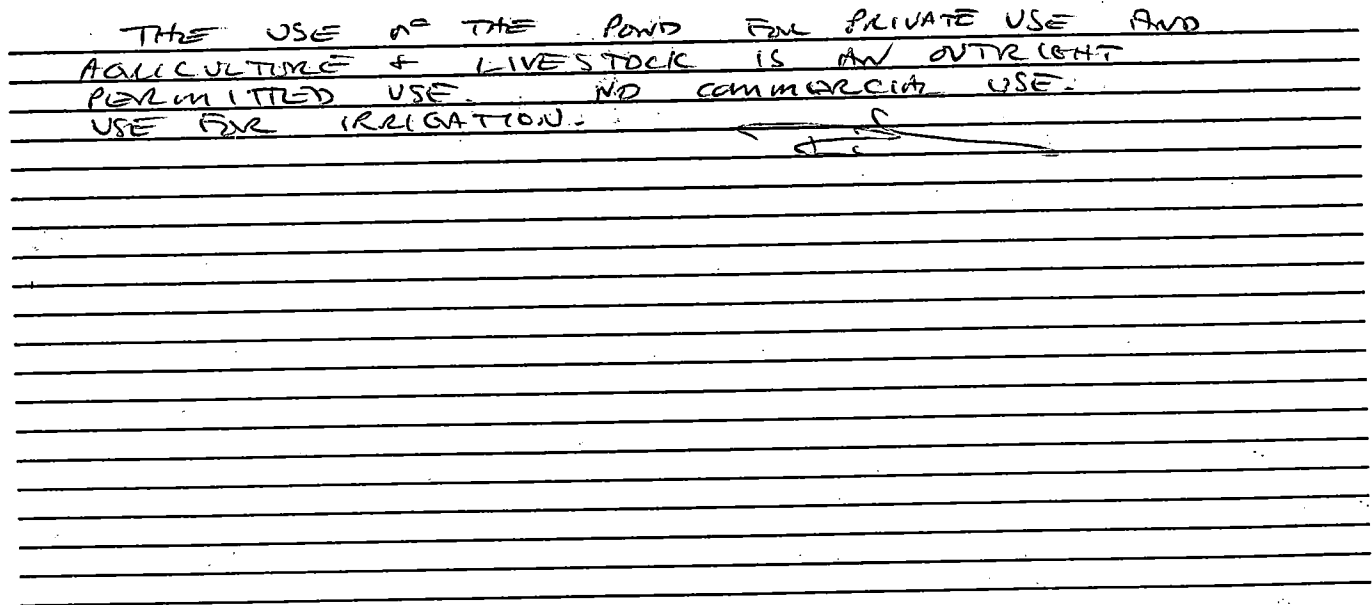 THE USE OF THE POND FOR PRIVATE USE AND
AGRICULTURE & LIVESTOCK IS AN OUTRIGHT
PERMITTED USE. NO COMMERCIAL USE.
USE FOR IRRIGATION.